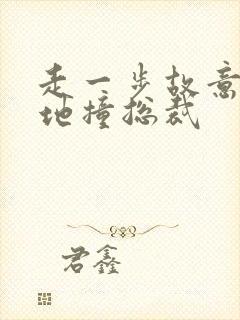 走一步故意
地撞总裁
君鑫